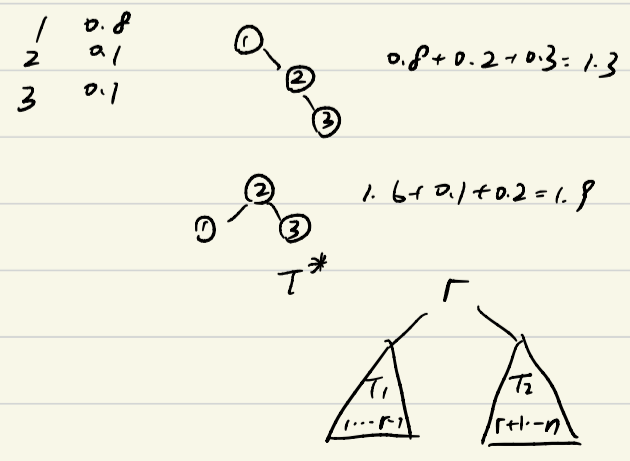 1 0.8
2 0.1
3 0.1
①
②
③
0.8 + 0.2 + 0.3 = 1.3
②
① ③
1.6 + 0.1 + 0.2 = 1.9
T*
r
T₁ T₂
1...r-1 r+1...n